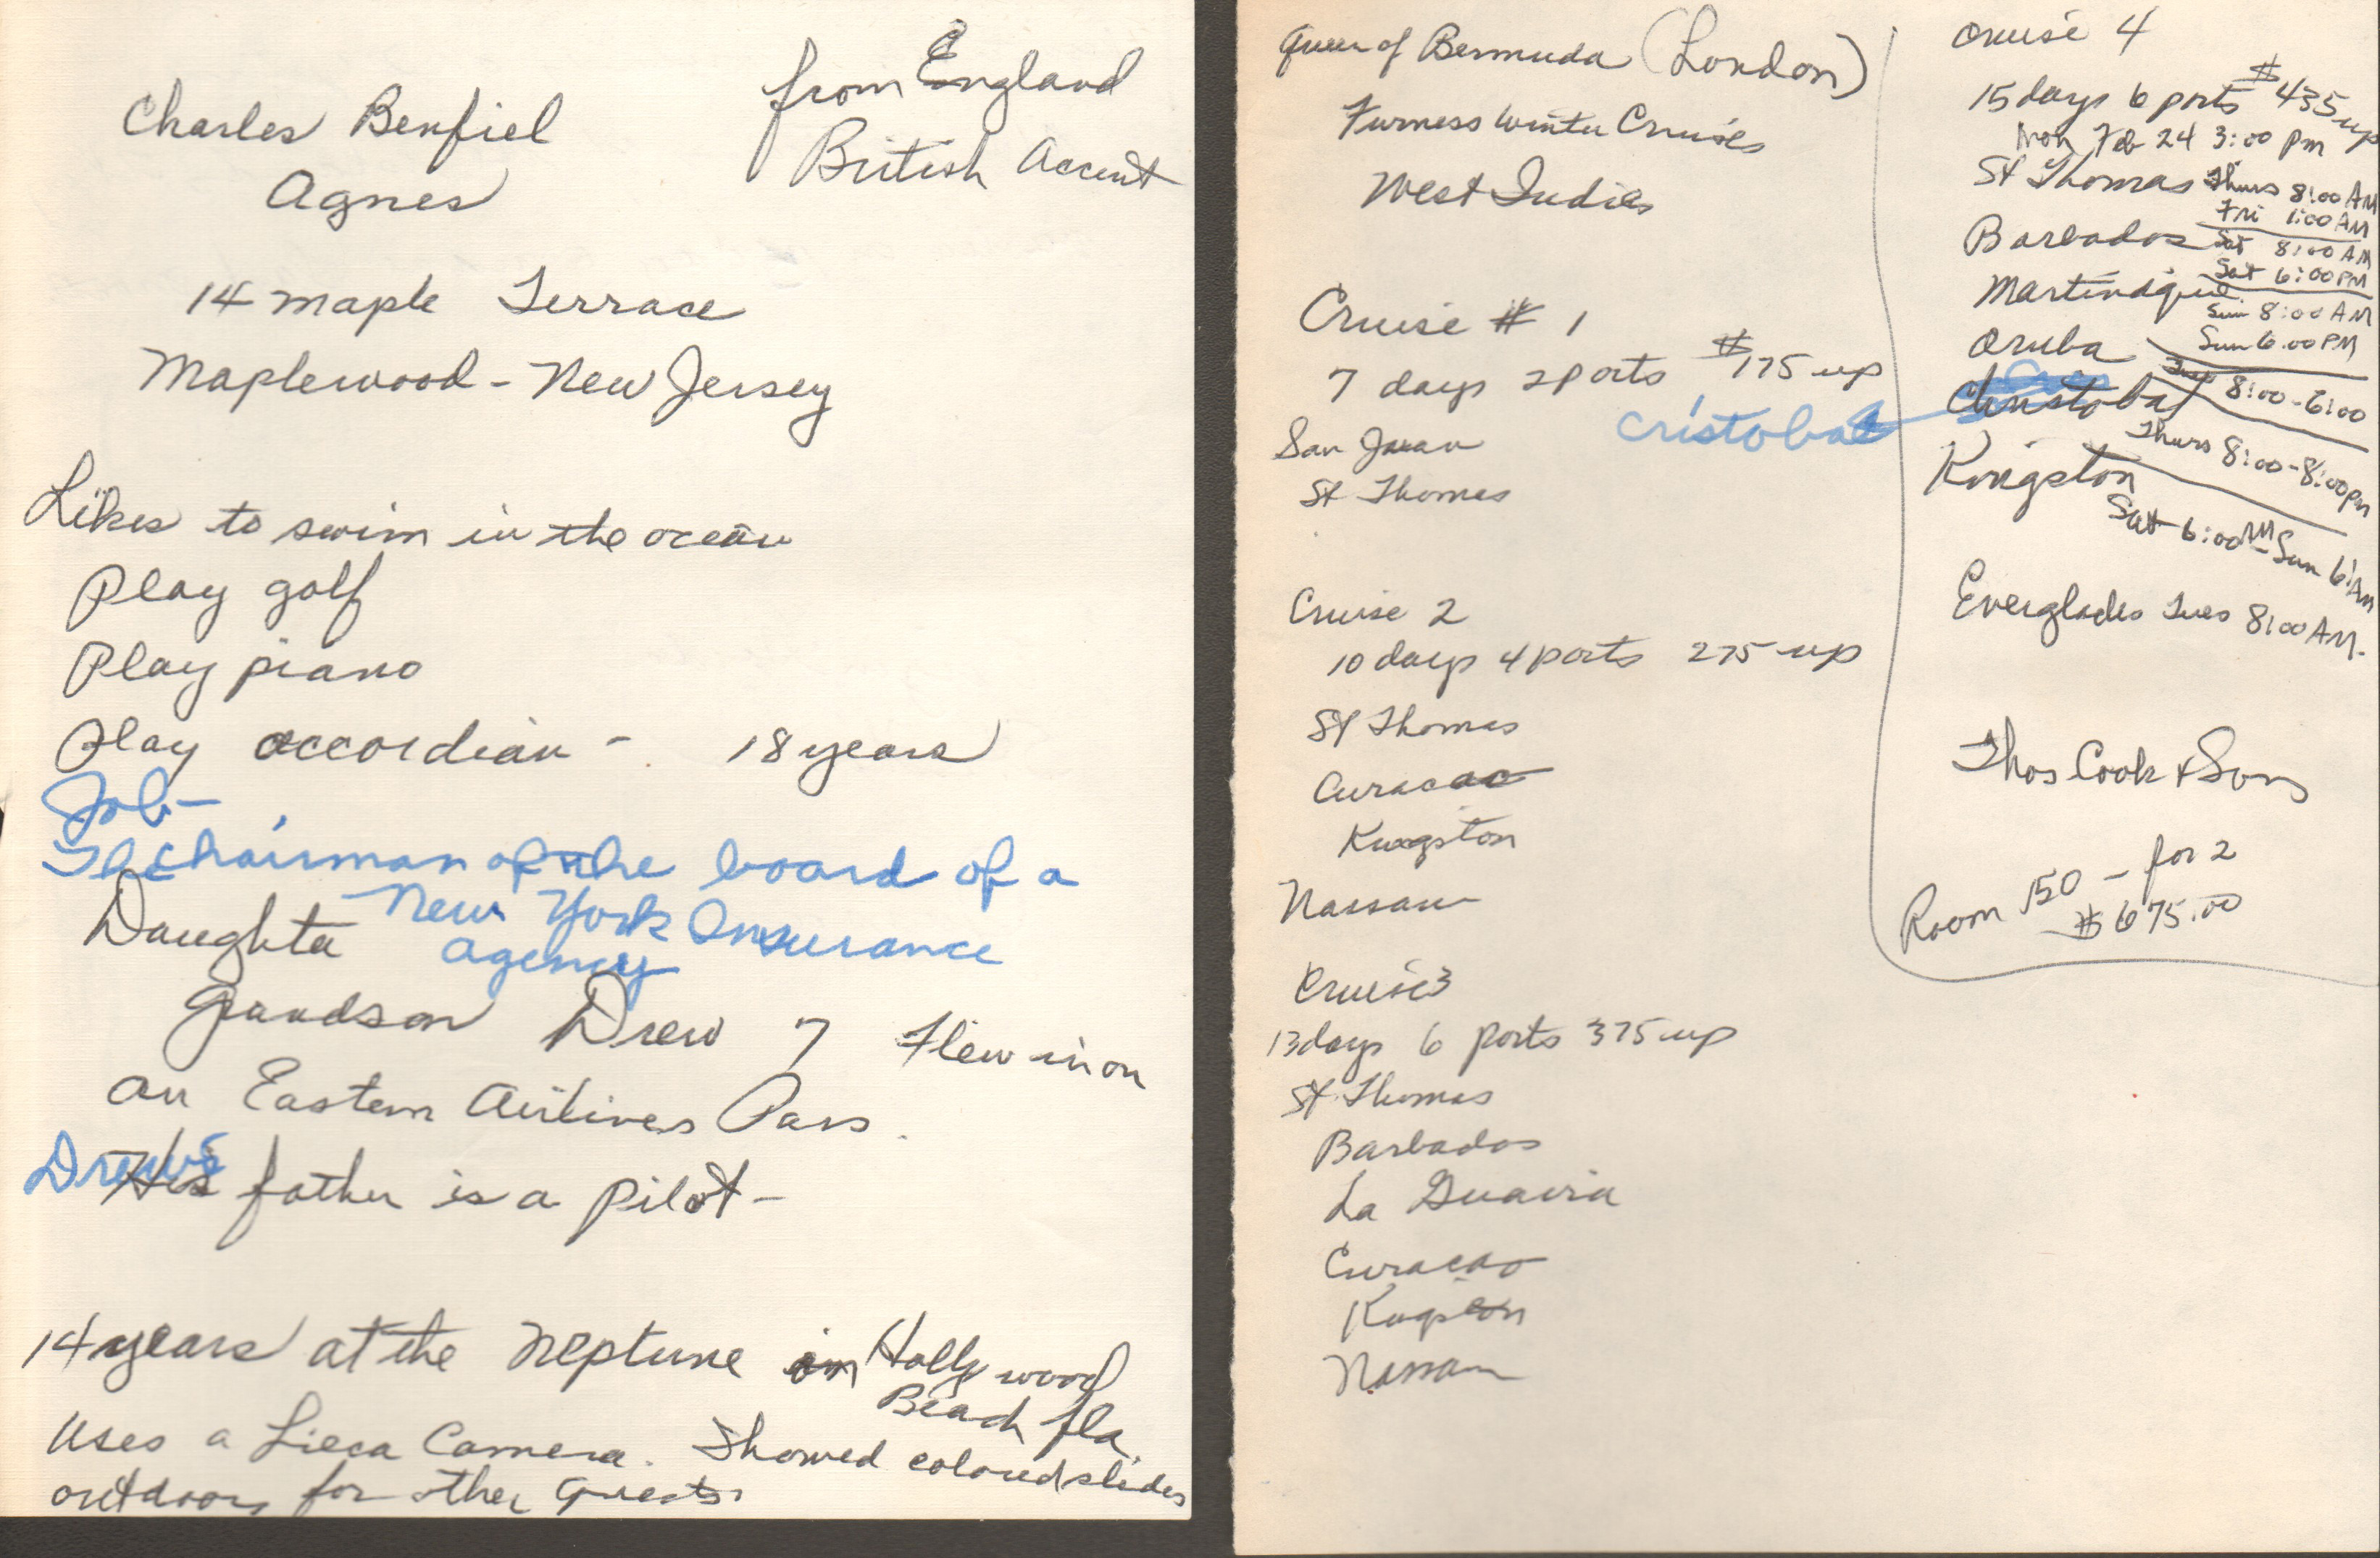 Charles Benfiel
Agnes
from England
British Accent
14 Maple Terrace
Maplewood - New Jersey
Likes to swim in the ocean
Play golf
Play piano
Play accordian - 18 years
Job-
The chairman of the board of a
New York Insurance
agency
Daughter
grandson Drew 7 Flew in on
an Eastern Airlines Pass.
Drew's
father is a pilot-
14 years at the Neptune in Hollywood
Beach fla.
Uses a Lieca Camera. Showed colored slides
outdoors for other guests.
Queen of Bermuda (London)
Furness Winter Cruises
West Indies
Cruise # 1
7 days 2 ports $175 up
San Juan
St Thomas
Cruise 2
10 days 4 ports 275 up
St Thomas
Curacao
Kingston
Nassau
Cruise 3
13 days 6 ports 375 up
St Thomas
Barbados
La Guaira
Curacao
Kingston
Nassau
Cruise 4
15 days 6 ports $435 up
Mon Feb 24 3:00 pm
St Thomas Thurs 8:00 AM
Fri 1:00 AM
Barbados Sat 8:00 AM
Sat 6:00 PM
Martinique Sun 8:00 AM
Sun 6:00 PM
Aruba Tues 8:00-6:00
Christobal
cristobal
Thurs 8:00-8:00pm
Kingston
Sat 6:00 AM - Sun 6 AM
Everglades Tues 8:00 AM.
Thos Cook & Sons
Room 150 - for 2
$675.00